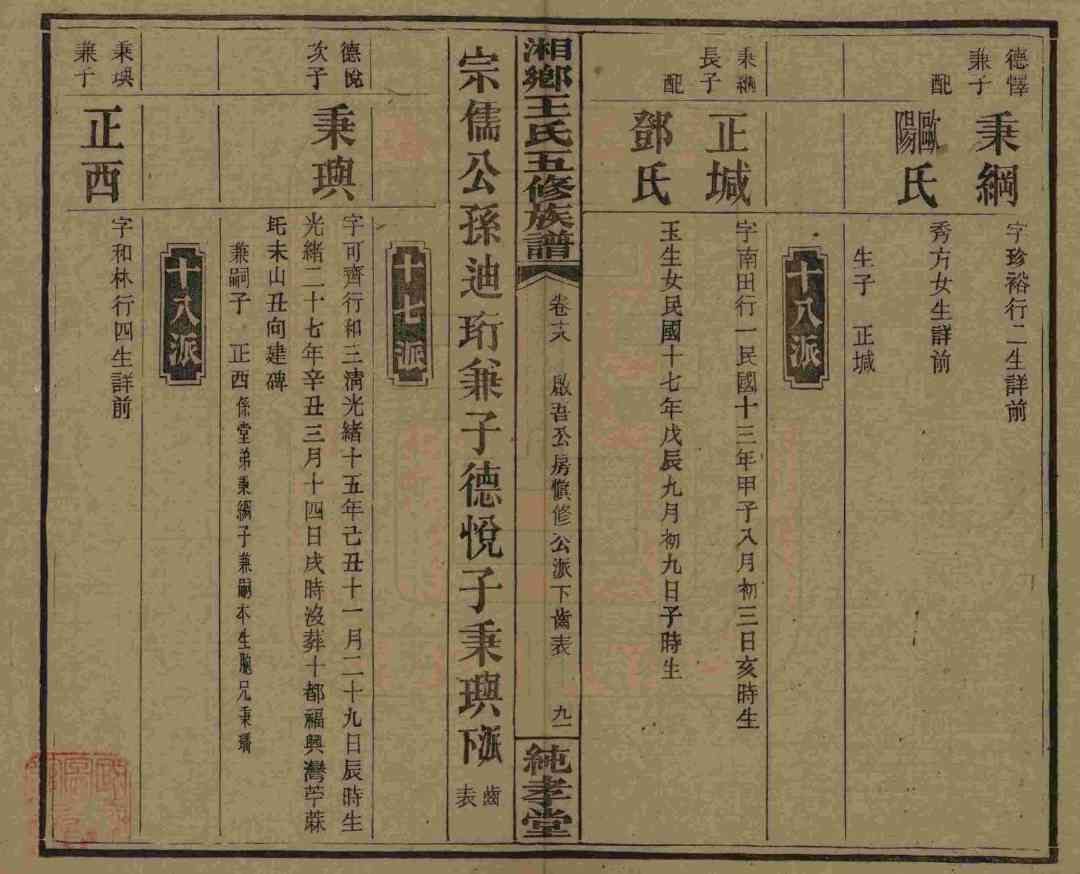 德懌
兼子
秉綱
字珍裕行二生詳前
配
歐陽氏
秀方女生詳前
生子 正堿
十八派
秉綱
長子
正堿
字南田行一民國十三年甲子八月初三日亥時生
配
鄧氏
玉生女民國十七年戊辰九月初九日子時生
湘鄉王氏五修族譜
卷十八 啟吾公房慎修公派下齒表 九一
純孝堂
宗儒公孫迪珩兼子德悅子秉璵派下齒表
十七派
德悅
次子
秉璵
字可齊行和三清光緒十五年己丑十一月二十九日辰時生
光緒二十七年辛丑三月十四日戌時沒葬十都福興灣苧蔴
坵未山丑向建碑
兼嗣子 正西係堂弟秉綱子兼嗣本生胞兄秉璠
十八派
秉璵
兼子
正西
字和林行四生詳前